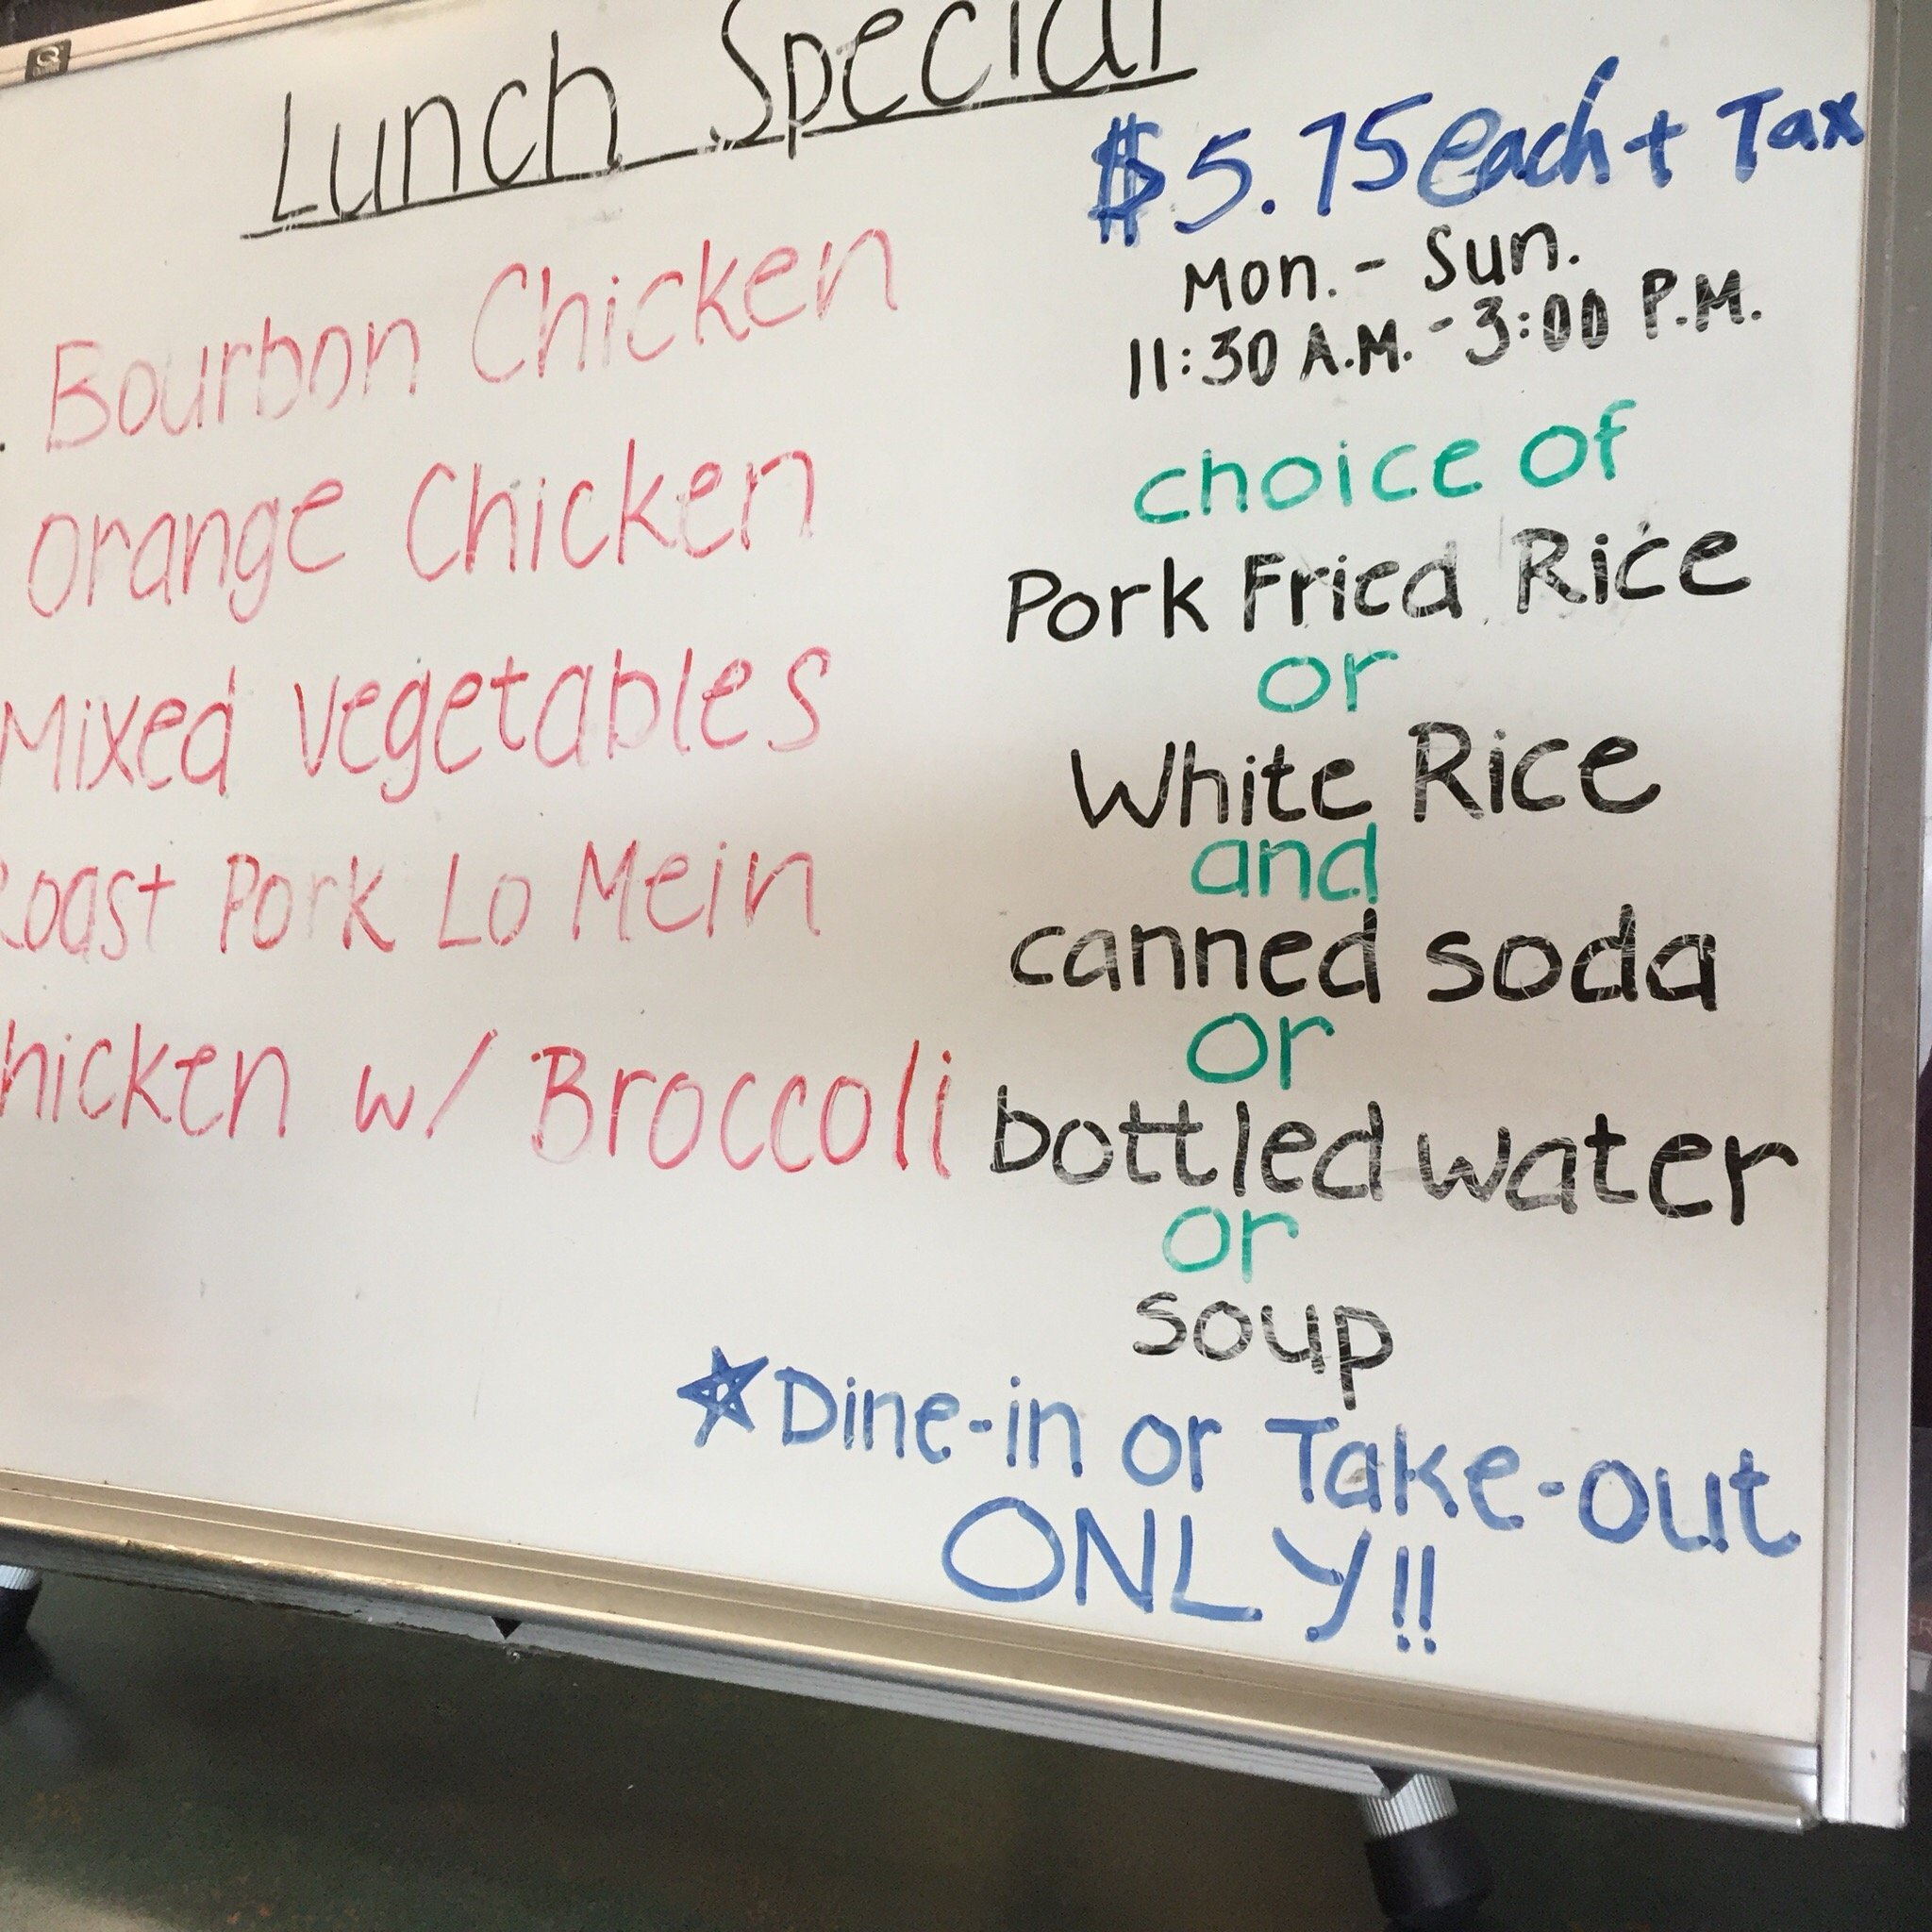 Lunch Special
$5.75 each + Tax
Mon. - Sun.
11:30 A.M. - 3:00 P.M.
. Bourbon Chicken
Orange Chicken
Mixed Vegetables
Roast Pork Lo Mein
hicken w/ Broccoli
choice of
Pork Fried Rice
or
White Rice
and
canned soda
or
bottled water
or
soup
☆Dine-in or Take-out
ONLY!!